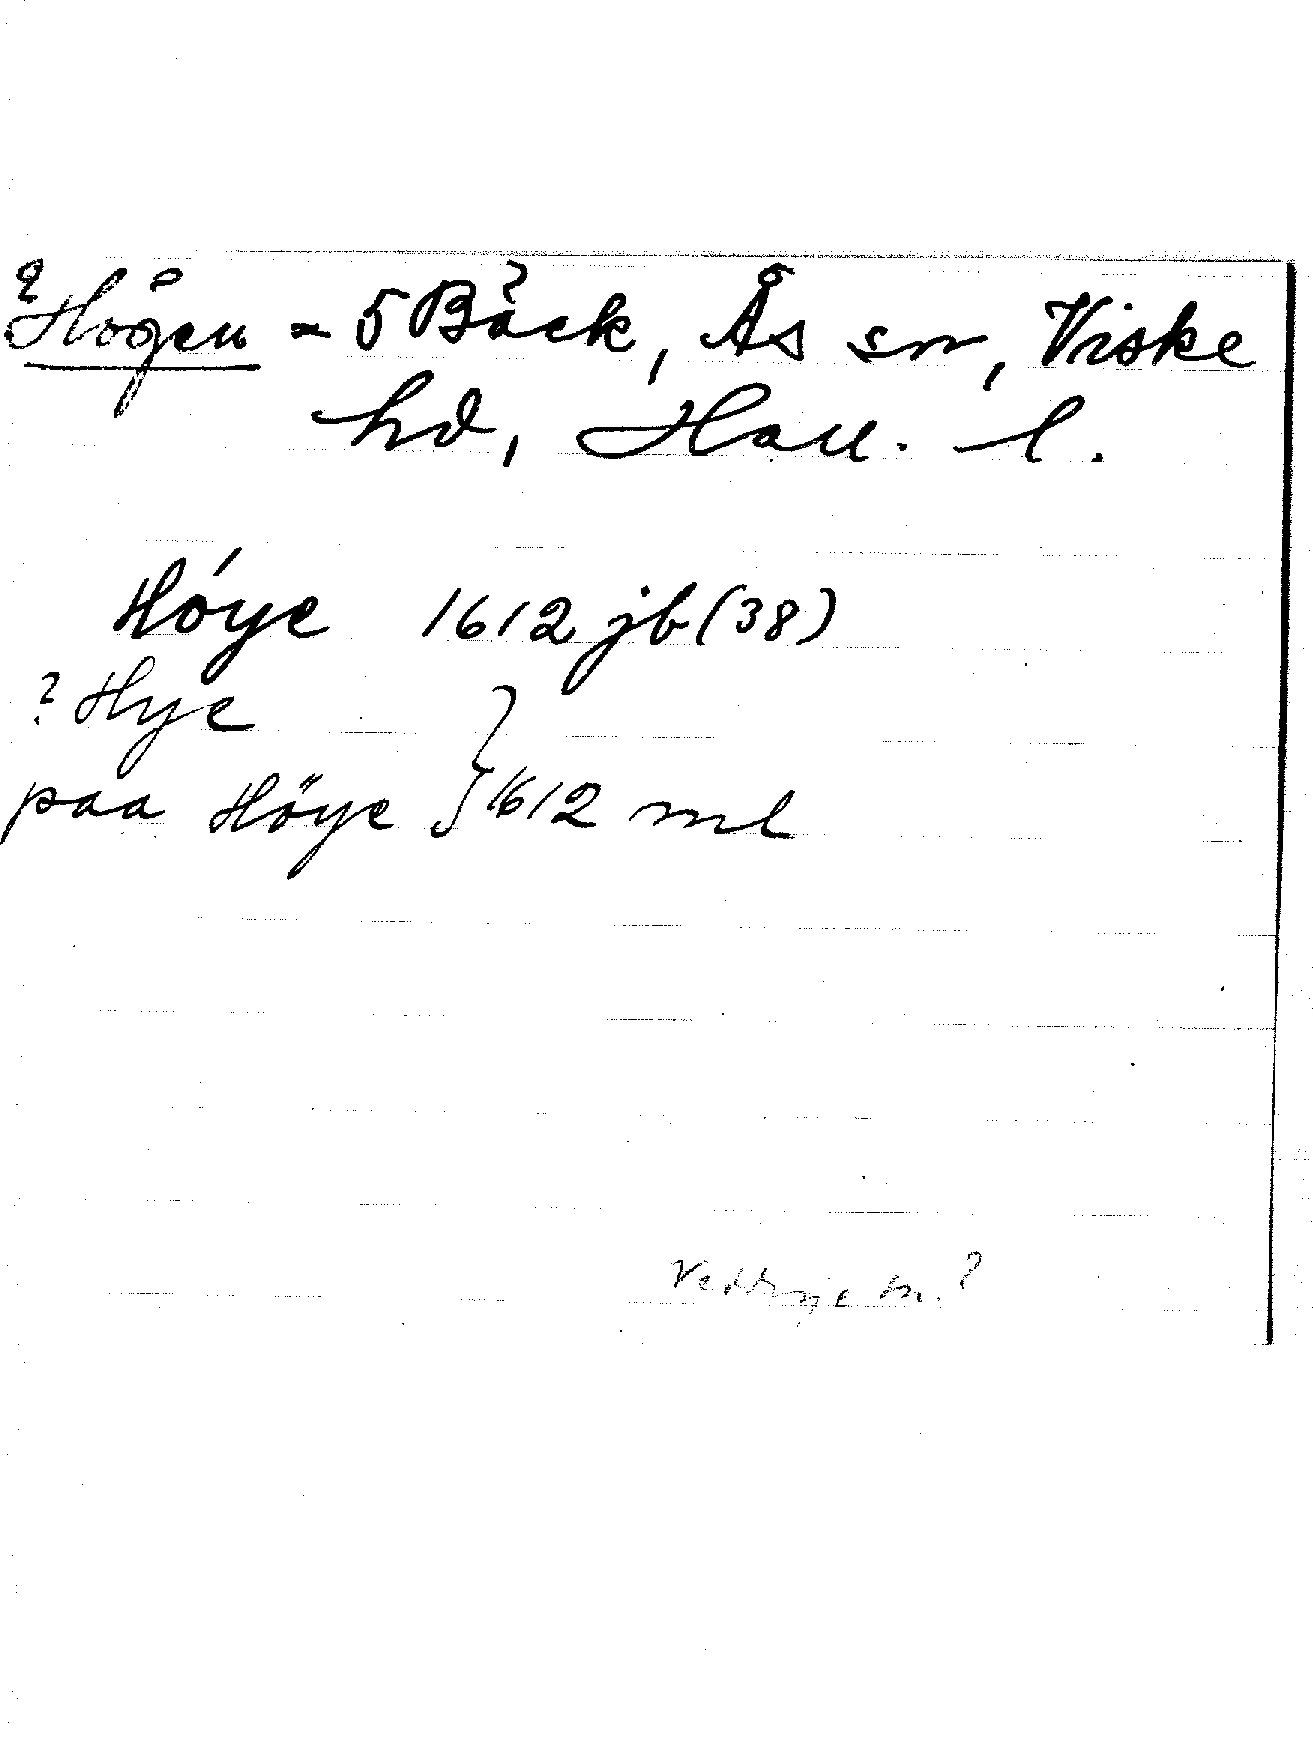 ? Högen = 5 Bäck, Ås sn, Viske
hd, Hall. l.
Høye 1612 jb (38)
? Hye
paa Höye } 1612 ml
sn. ?